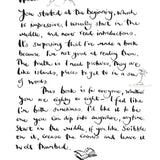 You started at the beginning, which
is impressive. I usually start in the
middle, and never read introductions.
It's surprising that I've made a book
because I'm not good at reading them.
The truth is I need pictures, they are
like islands, places to get to in a sea
of words.
This book is for everyone, whether
you are eighty or eight. I feel like
I'm both sometimes. I'd like it to be
one you can dip into anywhere, anytime.
Start in the middle, if you like. Scribble
on it, crease the corners and leave it
well thumbed.